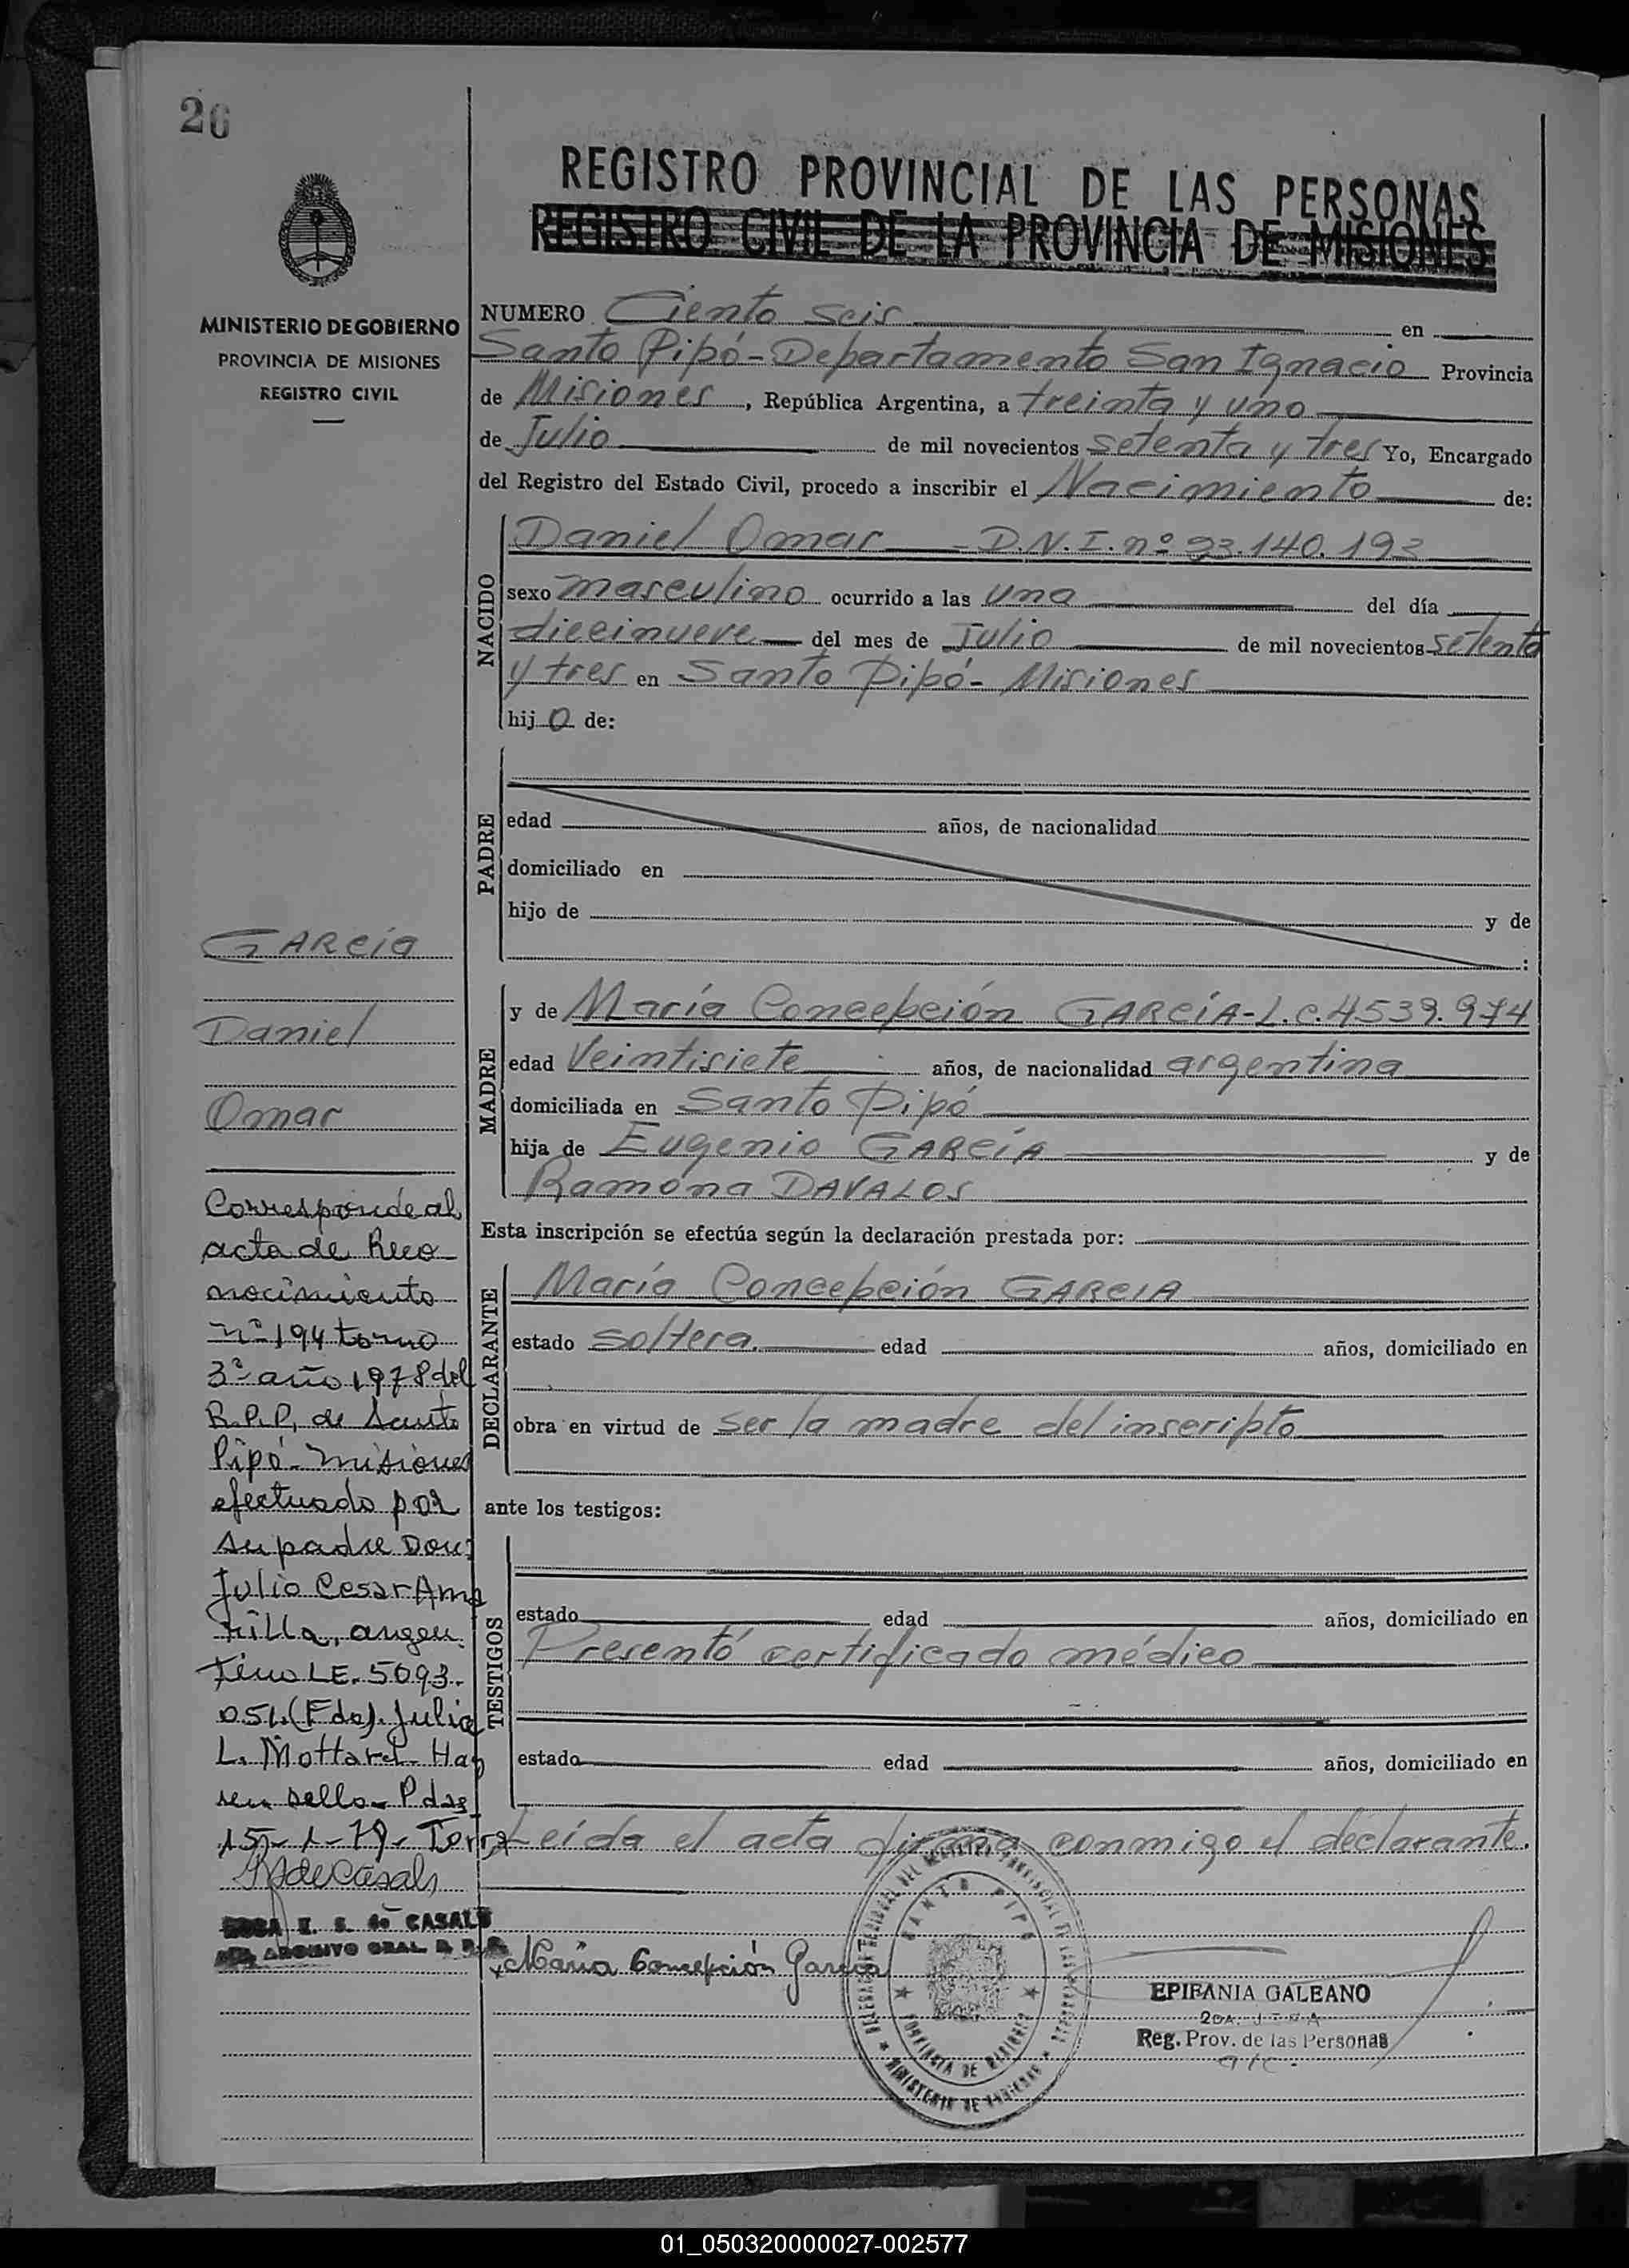 26
REGISTRO PROVINCIAL DE LAS PERSONAS
REGISTRO CIVIL DE LA PROVINCIA DE MISIONES
MINISTERIO DE GOBIERNO
PROVINCIA DE MISIONES
REGISTRO CIVIL
NUMERO Ciento seis en
Santo Pipó - Departamento San Ignacio Provincia
de Misiones, República Argentina, a treinta y uno
de Julio de mil novecientos setenta y tres Yo, Encargado
del Registro del Estado Civil, procedo a inscribir el Nacimiento de:
NACIDO
Daniel Omar - D.N.I. nº 23.140.193
sexo masculino ocurrido a las una del día
diecinueve del mes de Julio de mil novecientos setenta
y tres en Santo Pipó - Misiones
hijo de:
PADRE
edad años, de nacionalidad
domiciliado en
hijo de y de
:
MADRE
y de María Concepción GARCÍA - L.C. 4539.974
edad Veintisiete años, de nacionalidad argentina
domiciliada en Santo Pipó
hija de Eugenio GARCÍA y de
Ramona DAVALOS
Esta inscripción se efectúa según la declaración prestada por:
DECLARANTE
María Concepción GARCIA
estado soltera. edad años, domiciliado en
obra en virtud de ser la madre del inscripto
ante los testigos:
TESTIGOS
estado edad años, domiciliado en
Presentó certificado médico
estado edad años, domiciliado en
Leída el acta firma conmigo el declarante.
María Concepción García
SANTO PIPÓ
PROVINCIA DE MISIONES
MINISTERIO DE GOBIERNO
EPIFANIA GALEANO
Reg. Prov. de las Personas
a/c.
GARCÍA
Daniel
Omar
Corresponde al
acta de Reco
nocimiento
nº 194 tomo
3º año 1978 del
R.P.P. de Santo
Pipó - Misiones
efectuado por
su padre Don:
Julio Cesar Ama
rilla, argen
tino LE. 5093.
051. (Fdo). Julia
L. Mottard - Hay
un sello - Pdas
15 - 1 - 79 -
de CASALS
ARCHIVO GRAL. R. P. P.
01_050320000027-002577